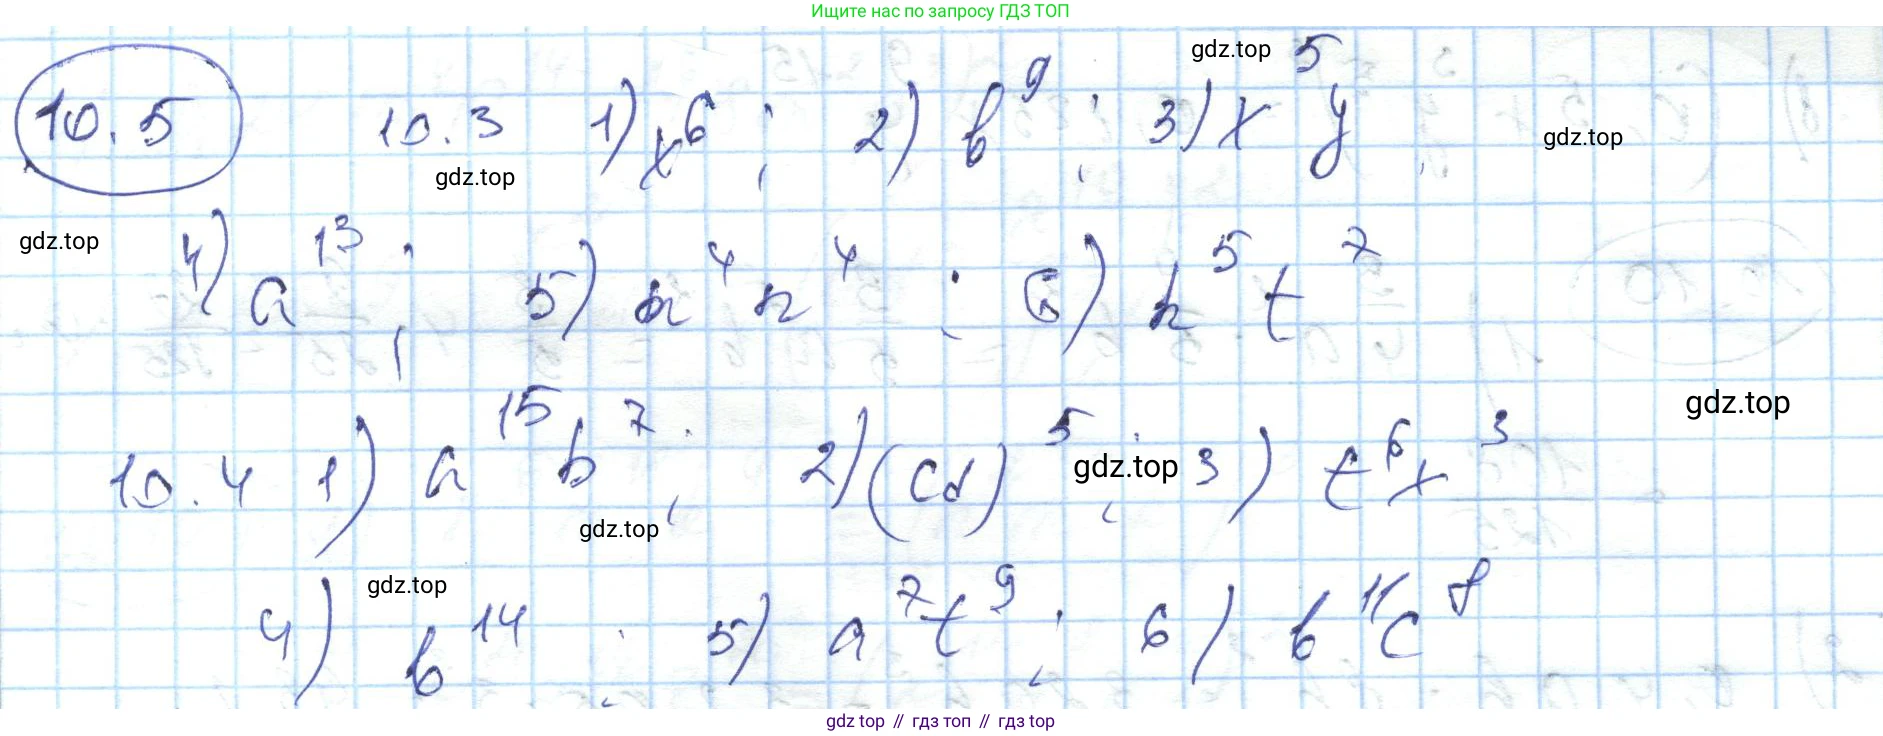 Ищите нас по запросу ГДЗ ТОП
gdz.top
10.5 10.3 1) x⁶ ; 2) b⁹ ; 3) x⁵y ;
gdz.top gdz.top
gdz.top
4) a¹³ ; 5) a⁴n⁴ ; 6) h⁵t⁷
gdz.top
10.4 1) a¹⁵b⁷ ; 2) (cd)⁵ ; 3) t⁶x³
gdz.top
gdz.top
gdz.top
4) b¹⁴ ; 5) a⁷t⁹ ; 6) b¹¹c⁸
gdz top // гдз топ // гдз top